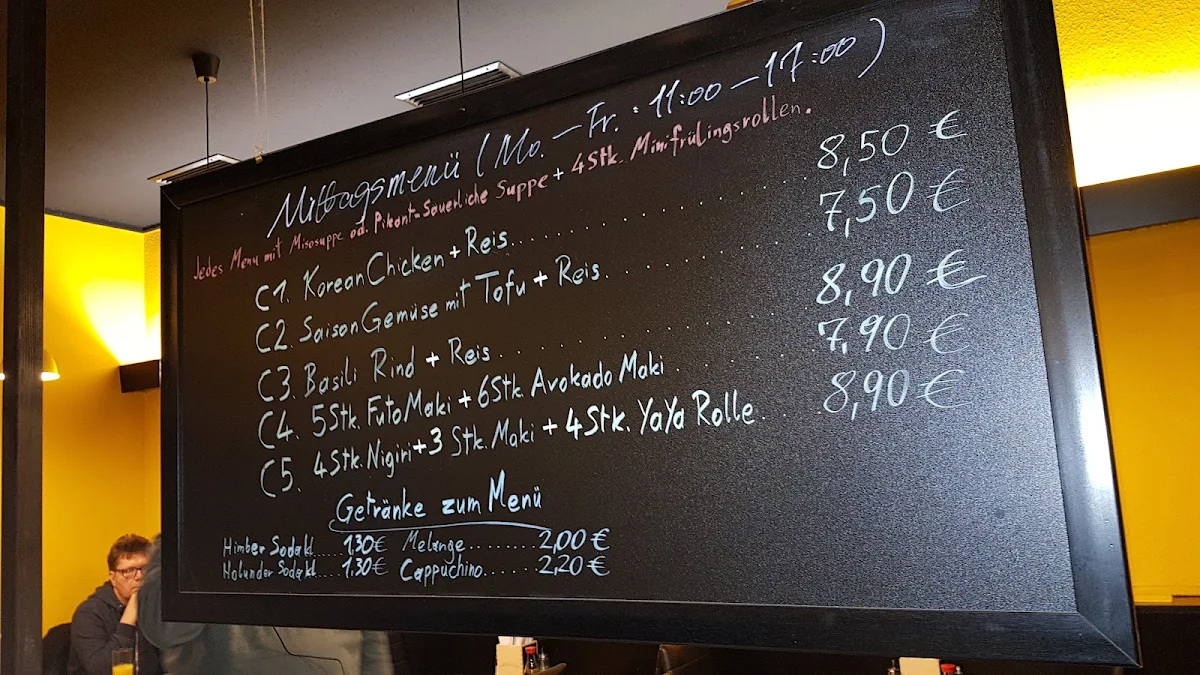 Mittagsmenü (Mo. – Fr. : 11:00 – 17:00)
Jedes Menü mit Misosuppe od. Pikant-Säuerliche Suppe + 4 Stk. Minifrülingsrollen.
C1. Korean Chicken + Reis.......... 8,50 €
C2. Saison Gemüse mit Tofu + Reis.......... 7,50 €
C3. Basili Rind + Reis.......... 8,90 €
C4. 5 Stk. Futo Maki + 6 Stk. Avokado Maki.... 7,90 €
C5. 4 Stk. Nigiri + 3 Stk. Maki + 4 Stk. YaYa Rolle... 8,90 €
Getränke zum Menü
Himber Soda kl..... 1,30 € Melange....... 2,00 €
Holunder Soda kl.... 1,30 € Cappuchino...... 2,20 €